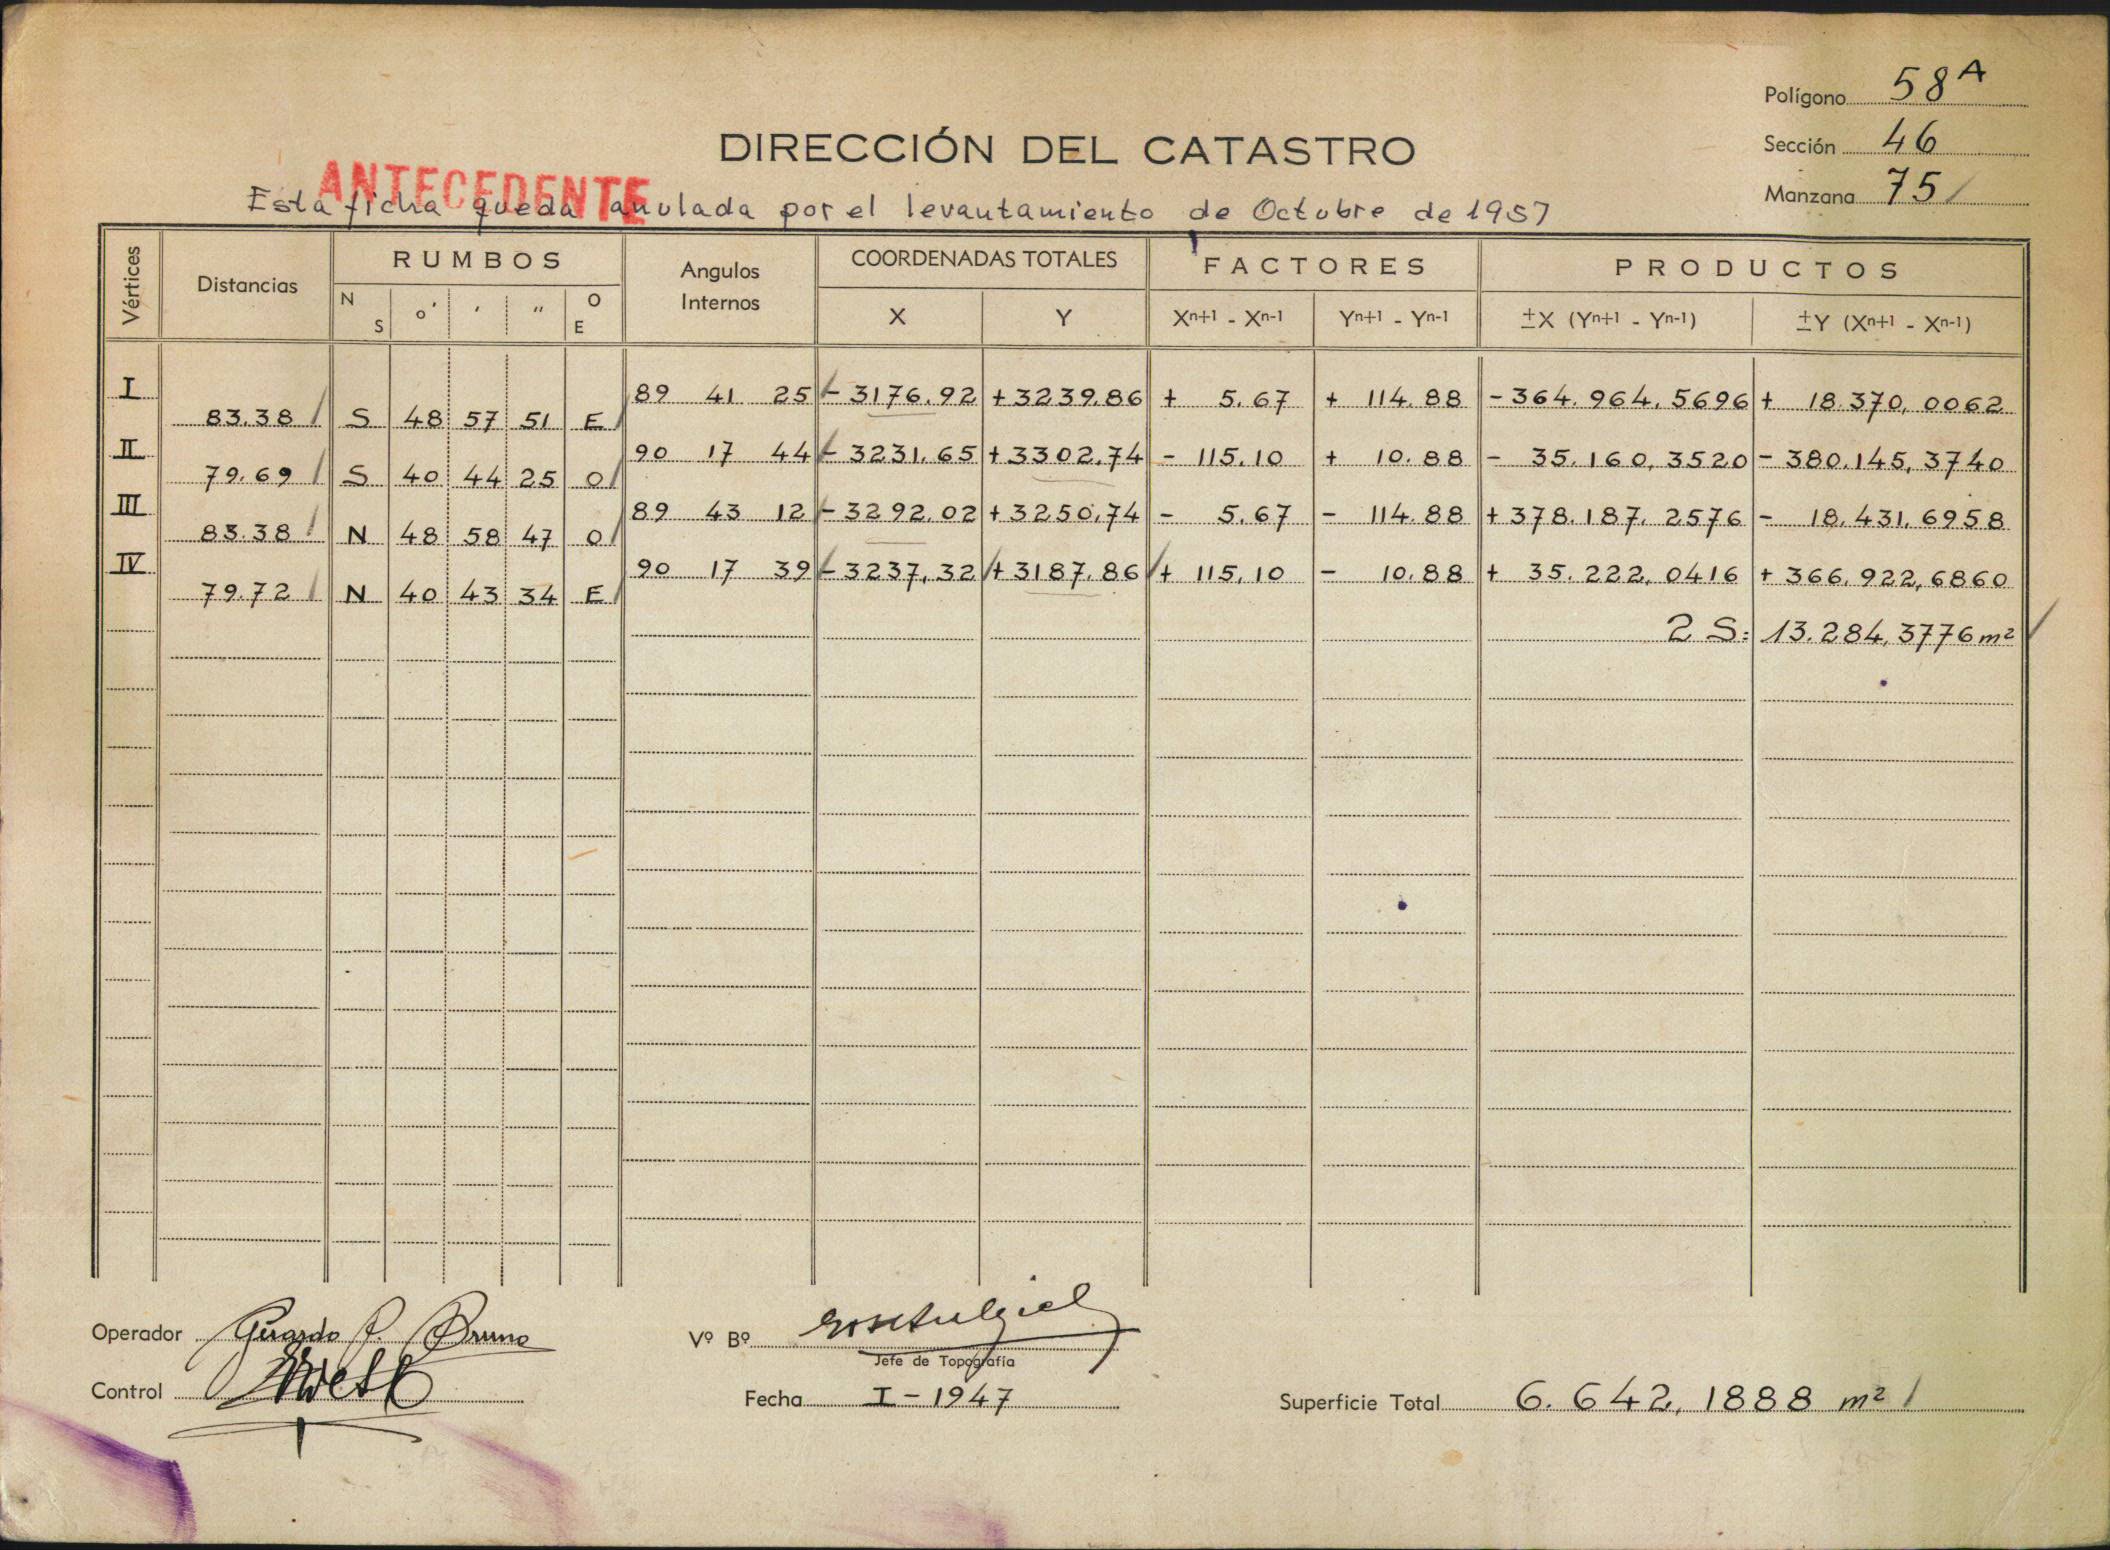 Polígono 58A
Sección 46
Manzana 75
DIRECCIÓN DEL CATASTRO
ANTECEDENTE
Esta ficha queda anulada por el levantamiento de Octubre de 1957
Vértices Distancias RUMBOS Angulos Internos COORDENADAS TOTALES FACTORES PRODUCTOS
N S o ' ' '' O E X Y Xn+1 - Xn-1 Yn+1 - Yn-1 ±X (Yn+1 - Yn-1) ±Y (Xn+1 - Xn-1)
I 89 41 25 - 3176.92 + 3239.86 + 5.67 + 114.88 - 364.964,5696 + 18.370,0062
83.38 S 48 57 51 E
II 90 17 44 - 3231.65 + 3302.74 - 115.10 + 10.88 - 35.160,3520 - 380.145,3740
79.69 S 40 44 25 O
III 89 43 12 - 3292.02 + 3250.74 - 5.67 - 114.88 + 378.187,2576 - 18.431,6958
83.38 N 48 58 47 O
IV 90 17 39 - 3237,32 + 3187.86 + 115.10 - 10.88 + 35.222,0416 + 366.922,6860
79.72 N 40 43 34 E
2 S: 13.284,3776 m²
Operador Gerardo P. Bruno
Vº Bº
Jefe de Topografía
Control
Fecha I - 1947
Superficie Total 6.642,1888 m²